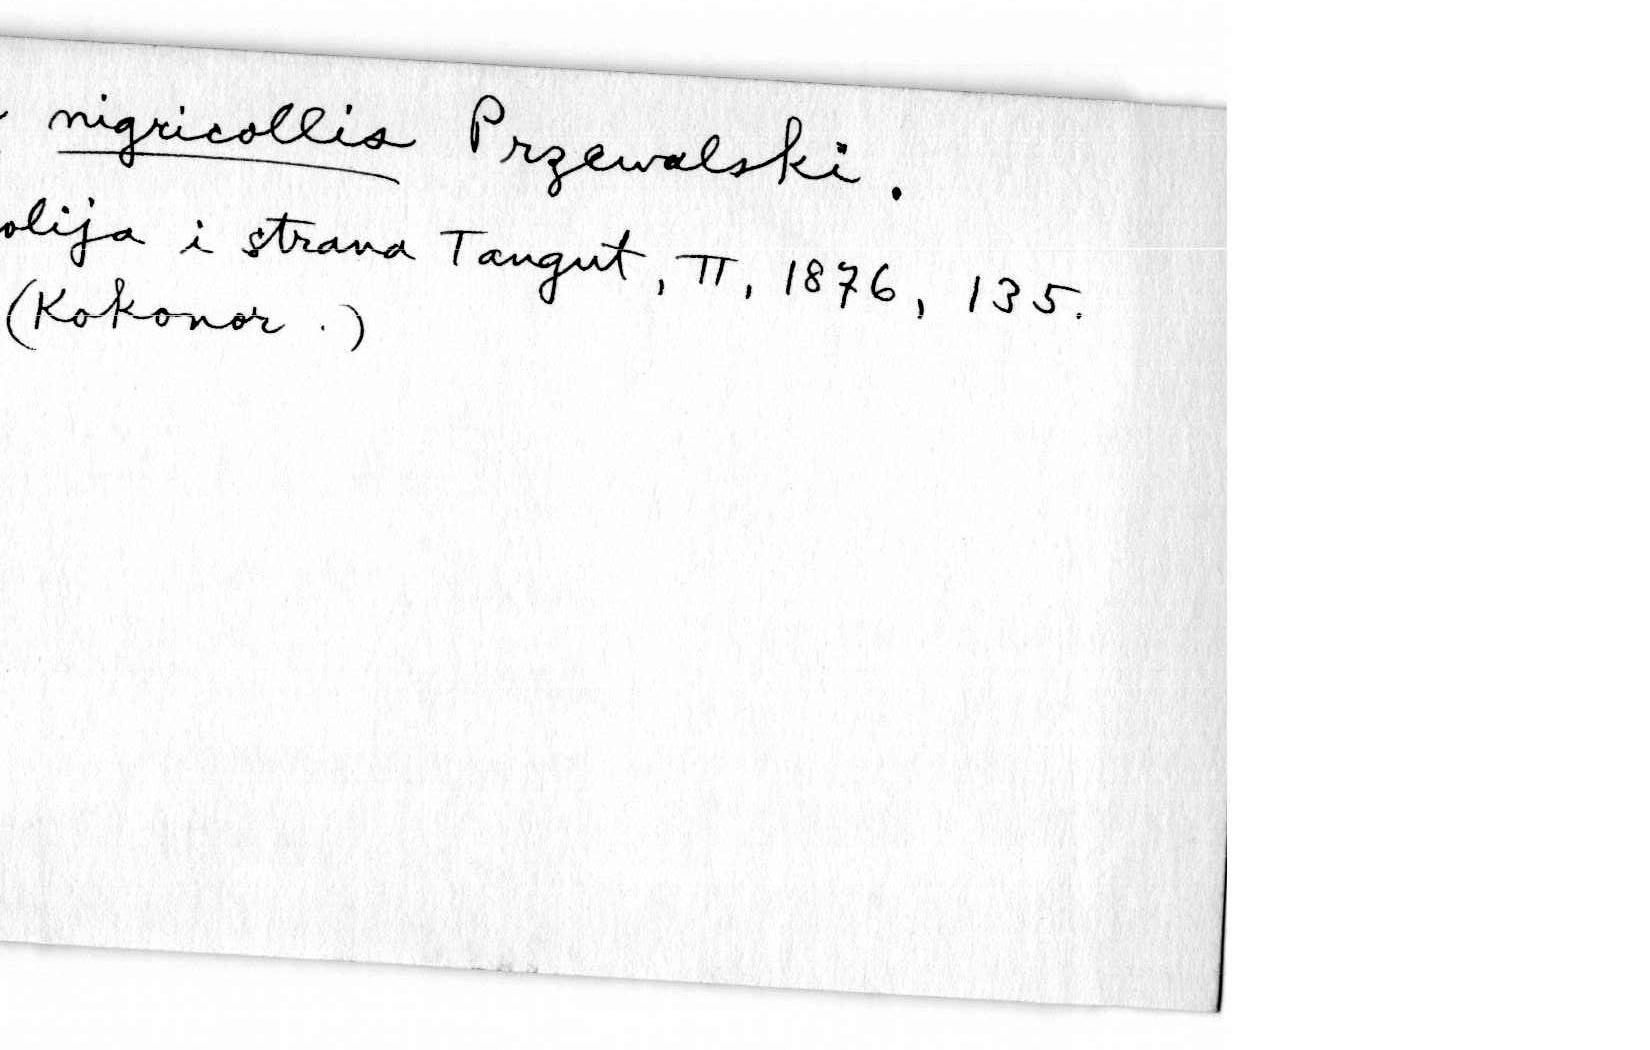 nigricollis Przewalski.
olija i strana Tangut, II, 1876, 135.
(Kokonor.)